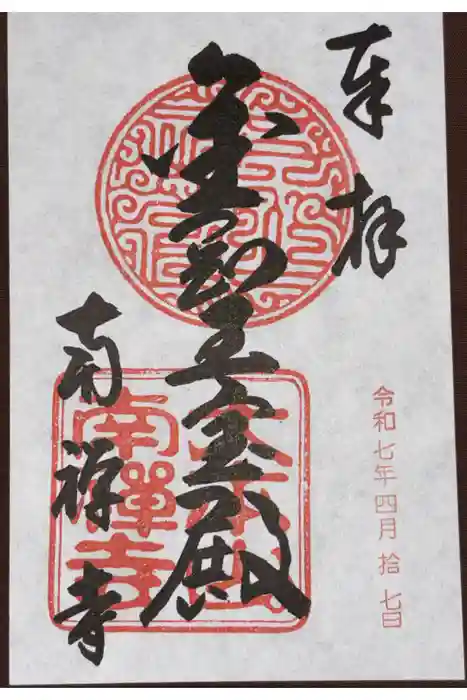 奉拝
令和七年四月拾七日
金剛王宝殿
南禅寺
大本山
南禪寺